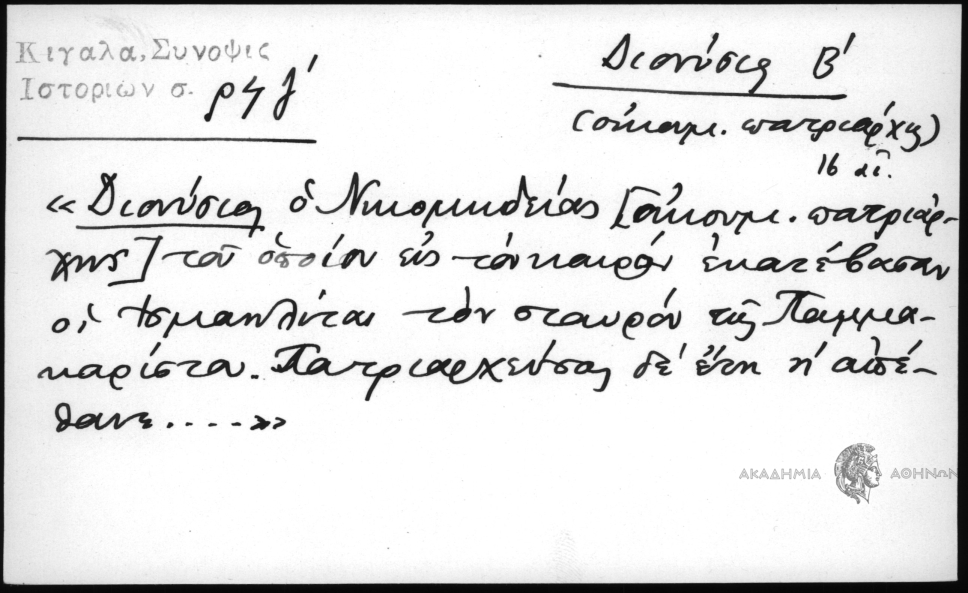 Κιγαλα, Συνοψις
Ιστοριών σ. ρϟζ΄
Διονύσιος Β΄
(οἰκουμ. πατριάρχης)
16 αἰ.
«Διονύσιος ὁ Νικομηδείας [οἰκουμ. πατριάρ-
χης] τοῦ ὁποίου εἰς τὸν καιρὸν ἐκατέβασαν
οἱ Ισμαηλίται τὸν σταυρόν τῆς Παμμα-
καρίστου. Πατριαρχεύσας δέ ἔτη η΄ ἀπέ-
θανε.....»
ΑΚΑΔΗΜΙΑ ΑΘΗΝΩΝ